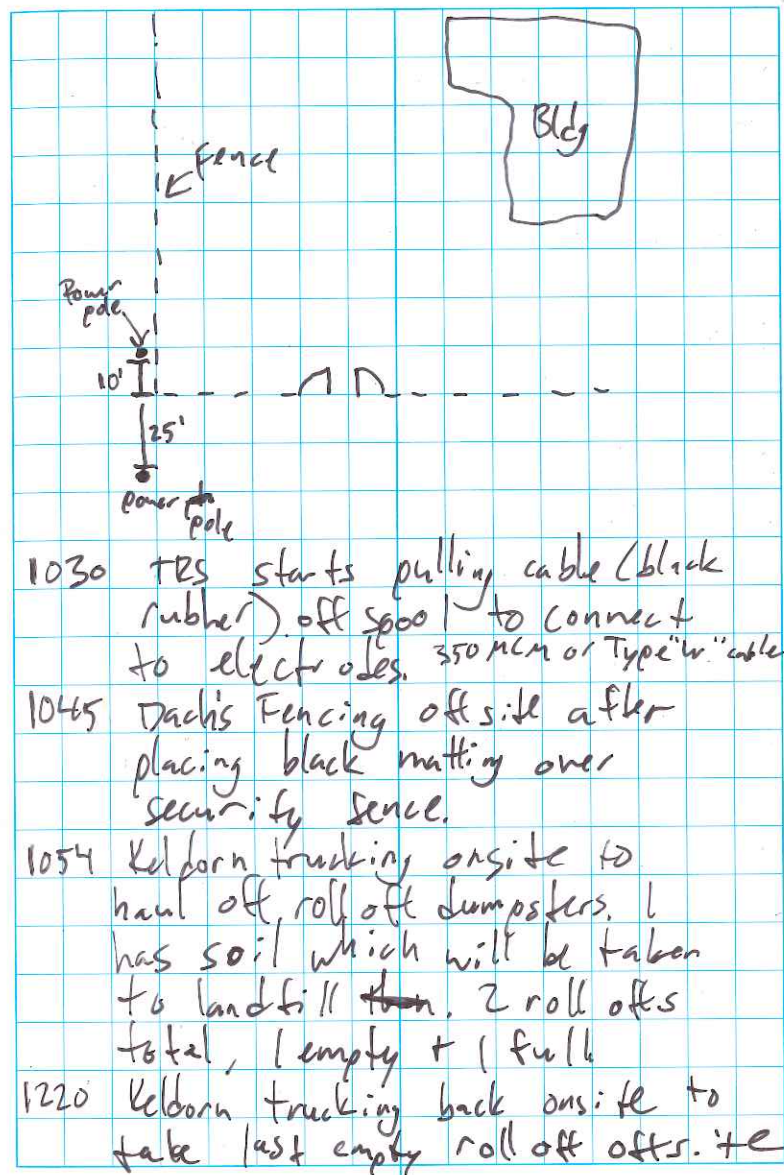 Bldg
Fence
Power
pole
10'
25'
power
pole
1030 TRS starts pulling cable (black
rubber) off spool to connect
to electrodes. 350 MCM or Type "W" cable
1045 Dach's Fencing offsite after
placing black matting over
security fence.
1054 Keldorn trucking onsite to
haul off roll off dumpsters. 1
has soil which will be taken
to landfill. 2 roll offs
total, 1 empty + 1 full
1220 Keldorn trucking back onsite to
take last empty roll off offsite